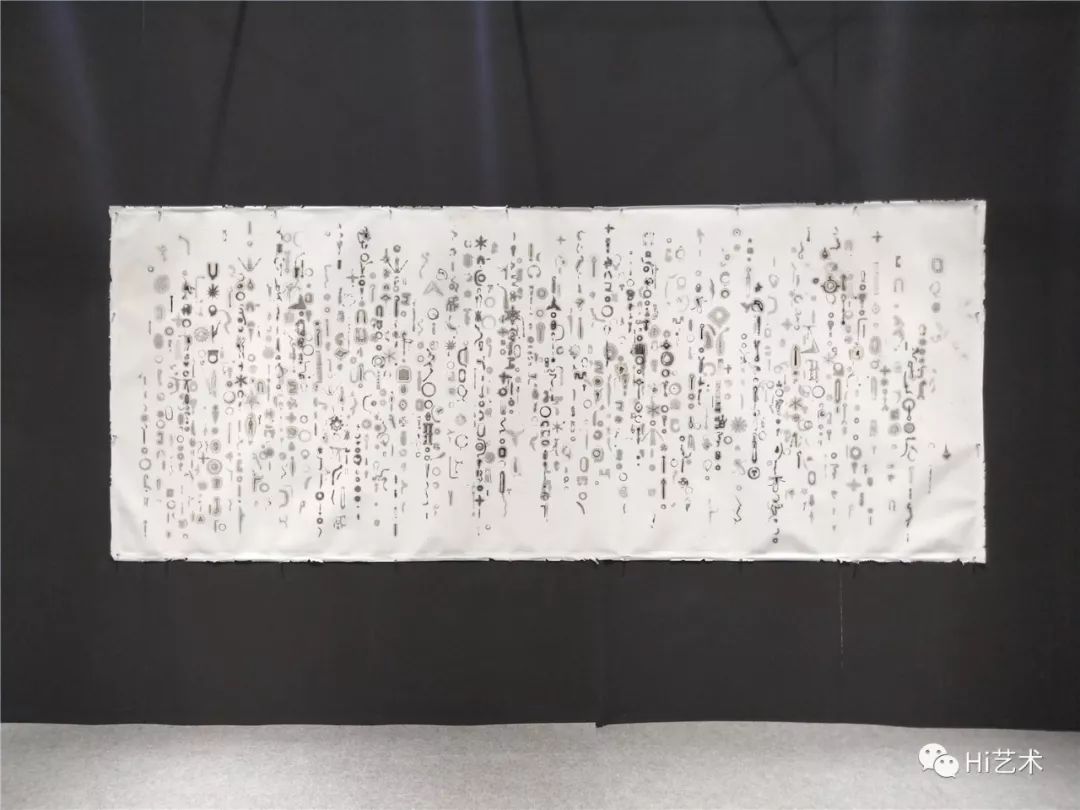 Hi艺术